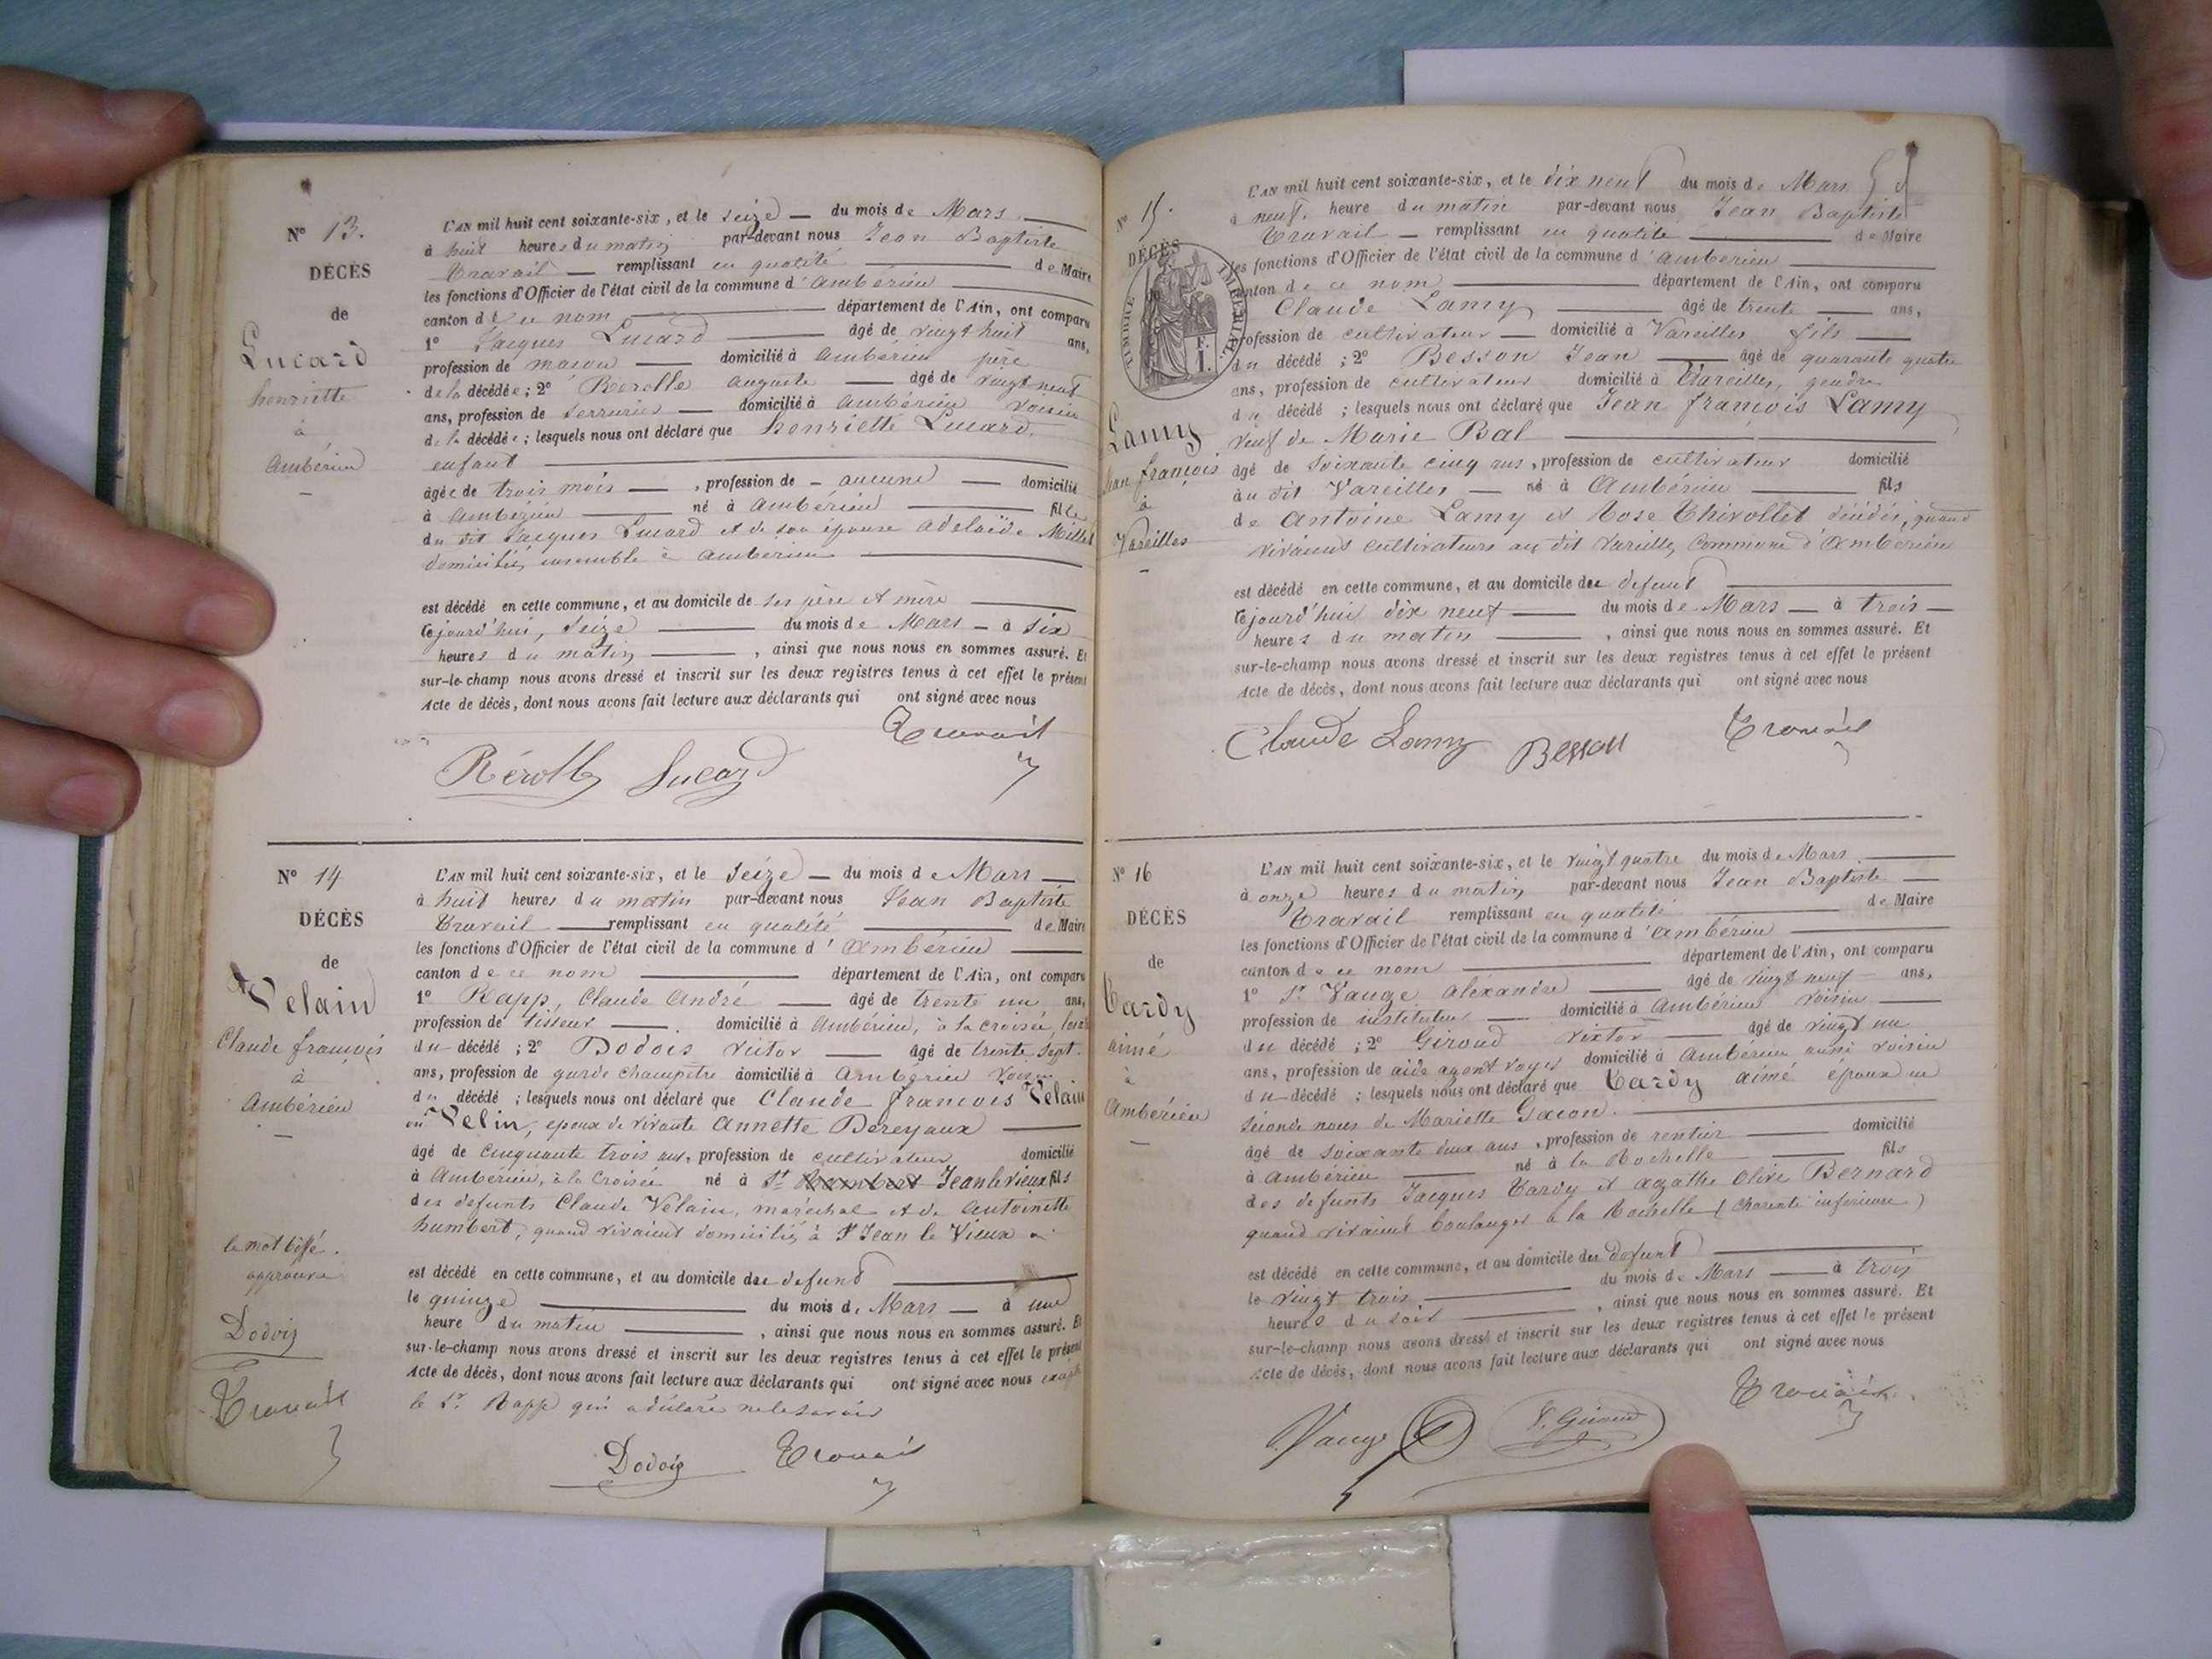 N° 13.
DÉCÈS
de
Lucard
henriette
à
Ambérieu
L'AN mil huit cent soixante-six, et le seize — du mois de Mars
à huit heures du matin par-devant nous Jean Baptiste
Travail — remplissant en qualité de Maire
les fonctions d'Officier de l'état civil de la commune d'Ambérieu
canton de ce nom département de l'Ain, ont comparu
1° Jacques Lucard âgé de vingt huit ans,
profession de maçon — domicilié à Ambérieu père
de la décédée ; 2° Rerolle auguste — âgé de vingt neuf
ans, profession de serrurier — domicilié à Ambérieu voisin
de la décédée ; lesquels nous ont déclaré que henriette Lucard.
enfant
âgée de trois mois — , profession de — aucune — domicilié
à Ambérieu né à Ambérieu fille
du dit Jacques Lucard et de son épouse adelaïde Millet
domiciliés ensemble à Ambérieu
est décédé en cette commune, et au domicile de ses père et mère
cejourd'hui, seize du mois de Mars — à six
heures du matin , ainsi que nous nous en sommes assuré. Et
sur-le-champ nous avons dressé et inscrit sur les deux registres tenus à cet effet le présent
Acte de décès, dont nous avons fait lecture aux déclarants qui ont signé avec nous
Travail
Rérolle Lucard
N° 14
DÉCÈS
de
Velain
Claude françois
à
Ambérieu
le mot biffé.
approuvé
Dodois
Travail
L'AN mil huit cent soixante-six, et le Seize — du mois de Mars —
à huit heures du matin par-devant nous Jean Baptiste
Travail — remplissant en qualité de Maire
les fonctions d'Officier de l'état civil de la commune d'Ambérieu
canton de ce nom département de l'Ain, ont comparu
1° Rapp, Claude André — âgé de trente un ans,
profession de tisseur — . domicilié à Ambérieu, à la croisée,
du décédé ; 2° Dodois victor — âgé de trente sept.
ans, profession de garde champêtre domicilié à Ambérieu voisin
du décédé ; lesquels nous ont déclaré que Claude françois Velain
ou Velin, époux de vivante Annette Dereyaux
âgé de cinquante trois ans, profession de cultivateur domicilié
à Ambérieu, à la Croisée né à St Rambert Jean le vieux fils
des defunts Claude Velain, maréchal et de Antoinette
humbert, quand vivaient domiciliés à St Jean le Vieux
est décédé en cette commune, et au domicile du defunt
le quinze du mois de Mars — à une
heure du matin , ainsi que nous nous en sommes assuré. Et
sur-le-champ nous avons dressé et inscrit sur les deux registres tenus à cet effet le présent
Acte de décès, dont nous avons fait lecture aux déclarants qui ont signé avec nous excepté
le Sr. Rapp qui a déclaré ne le savoir
Dodois Travail
N° 15.
DÉCÈS
TIMBRE IMPÉRIAL
F.
1.
Lamy
Jean françois
à
Vareilles
L'AN mil huit cent soixante-six, et le dix neuf du mois de Mars
à neuf. heure du matin par-devant nous Jean Baptiste
Travail — remplissant en qualité de Maire
les fonctions d'Officier de l'état civil de la commune d'Ambérieu
canton de ce nom département de l'Ain, ont comparu
Claude Lamy âgé de trente — ans,
profession de cultivateur — domicilié à Vareilles fils
du décédé ; 2° Besson Jean — âgé de quarante quatre
ans, profession de cultivateur domicilié à Vareilles, gendre
du décédé ; lesquels nous ont déclaré que Jean françois Lamy
veuf de Marie Bal
âgé de soixante cinq ans, profession de cultivateur domicilié
au dit Vareilles — né à Ambérieu fils
de Antoine Lamy et Rose Thivollet décédés, quand
vivaient cultivateurs au dit Vareilles, Commune d'Ambérieu
est décédé en cette commune, et au domicile du defunt
cejourd'hui dix neuf — du mois de Mars — à trois —
heures du matin , ainsi que nous nous en sommes assuré. Et
sur-le-champ nous avons dressé et inscrit sur les deux registres tenus à cet effet le présent
Acte de décès, dont nous avons fait lecture aux déclarants qui ont signé avec nous
Claude Lamy Besson Travail
N° 16
DÉCÈS
de
Tardy
aimé
à
Ambérieu
L'AN mil huit cent soixante-six, et le vingt quatre du mois de Mars
à onze heures du matin par-devant nous Jean Baptiste —
Travail remplissant en qualité de Maire
les fonctions d'Officier de l'état civil de la commune d'Ambérieu
canton de ce nom département de l'Ain, ont comparu
1° Sr Vauge alexandre âgé de vingt neuf ans,
profession de instituteur — domicilié à Ambérieu voisin
du décédé ; 2° Giroud victor — âgé de vingt un
ans, profession de aide agent voyer domicilié à Ambérieu aussi voisin
du décédé ; lesquels nous ont déclaré que Tardy aimé époux en
seconde noces de Mariette Gacon.
âgé de soixante deux ans, profession de rentier domicilié
à Ambérieu né à la Rochelle fils
des defunts Jacques Tardy et agathe Olive Bernard
quand vivaient boulanger à la Rochelle (Charente inférieure)
est décédé en cette commune, et au domicile du defunt
le vingt trois. du mois de Mars — à trois
heures du soir , ainsi que nous nous en sommes assuré. Et
sur-le-champ nous avons dressé et inscrit sur les deux registres tenus à cet effet le présent
Acte de décès, dont nous avons fait lecture aux déclarants qui ont signé avec nous
Vauge V. Giroud Travail